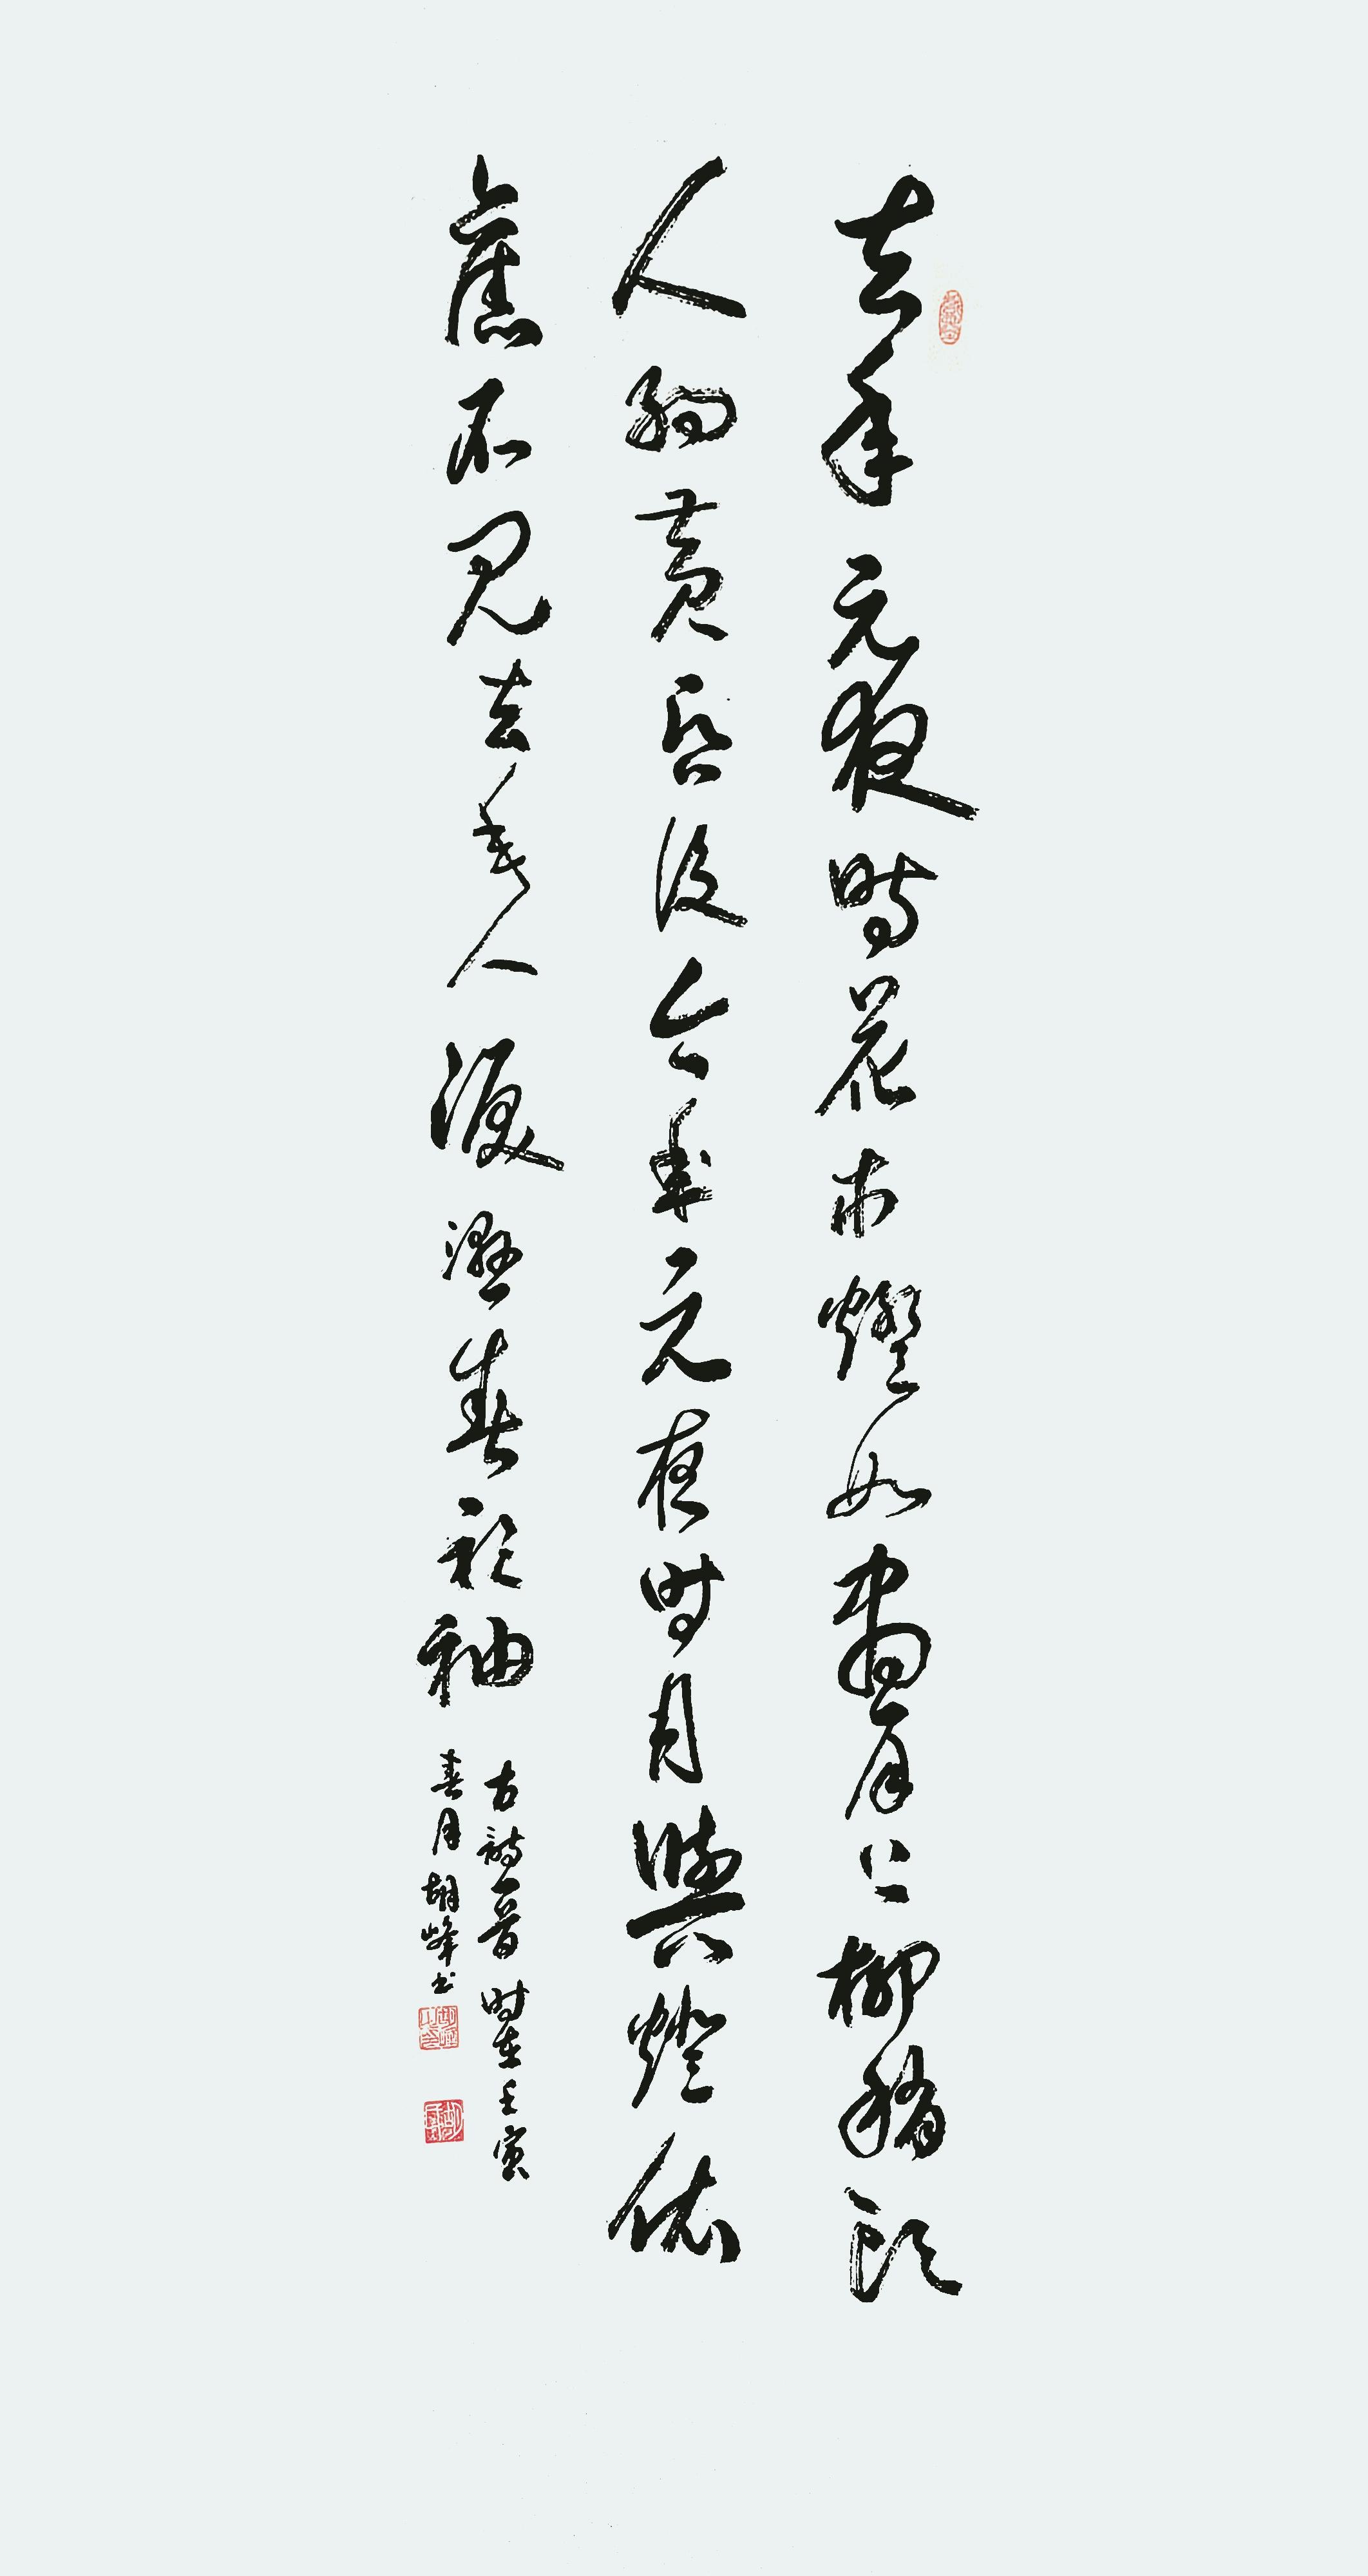 去年元夜時花市燈如晝月上柳梢頭
人約黃昏後今年元夜時月與燈依
舊不見去年人淚濕春衫袖
古詩一首時在壬寅
春月胡峰书